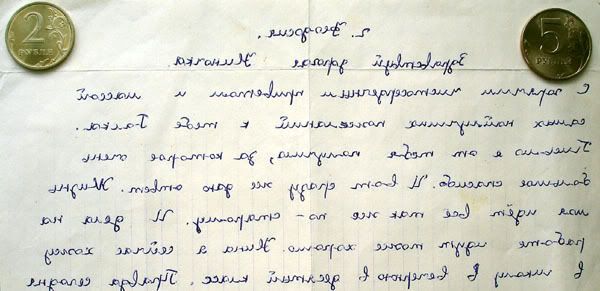 2 РУБЛЯ
5 РУБЛЕЙ
г. Феодосия.
Здравствуй дорогая Ниночка
С горячим чистосердечным приветом и массой
самых наилучших пожеланий к тебе Галка.
Письмо я от тебя получила, за которое очень
большое спасибо. И вот сразу же даю ответ. Жизнь
моя идёт всё так же по-старому. И дела на
работе идут тоже хорошо. Нина я сейчас хожу
в школу в вечернюю в десятый класс. Правда сегодня